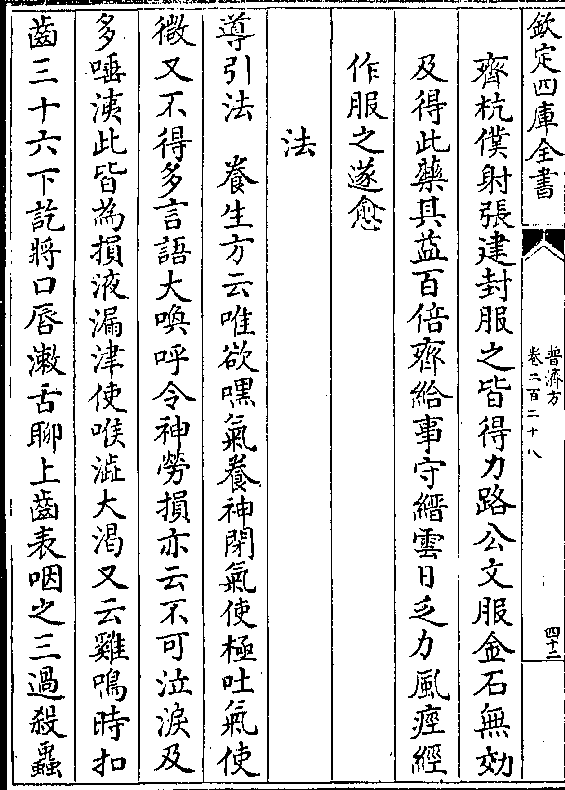 欽定四庫全書
普濟方
卷二百二十八
四十二
齊杭僕射張建封服之皆得力路公文服金石無効
及得此藥其益百倍齊給事守縉雲日乏力風痓經
作服之遂愈
法
導引法　養生方云唯欲嘿氣養神閉氣使極吐氣使
微又不得多言語大喚呼令神勞損亦云不可泣淚及
多唾洟此皆為損液漏津使喉澁大渴又云雞鳴時扣
齒三十六下訖將口唇漱舌聊上齒表咽之三過殺蟲